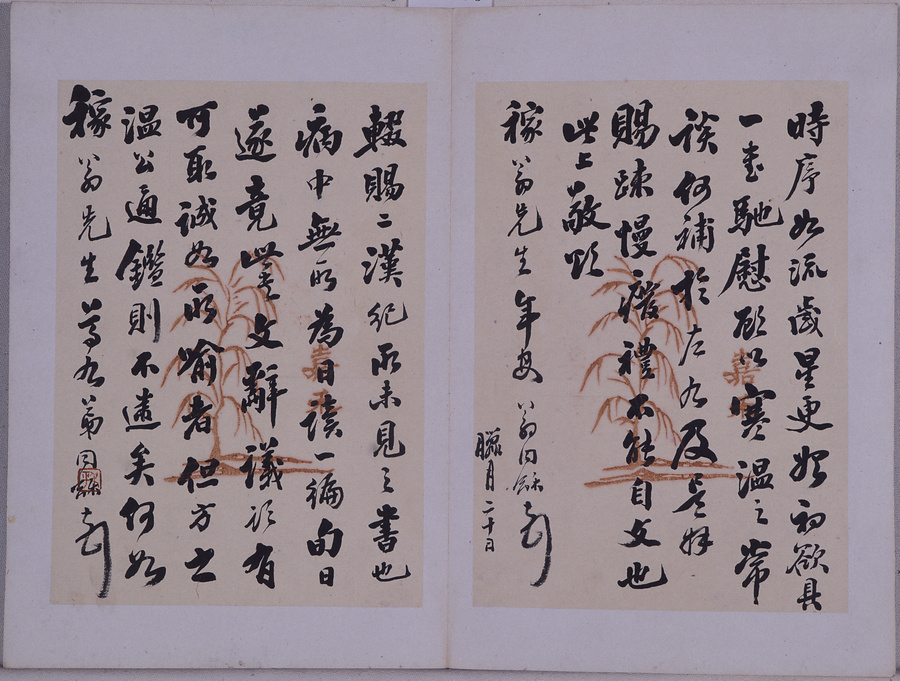 時序如流歲星更始初欲具
一書馳慰顧以寒溫之常
談何補於左右及拜
賜疎慢廢禮不能自文也
此上敬頌
稼翁先生年安 翁同龢頓首
臘月二十日
輟賜二漢紀所未見之書也
病中無所為日讀一編旬日
遂竟此書文辭議論有
可取誠如所喻者但方之
溫公通鑑則不逮矣何如
稼翁先生尊右弟同龢頓首